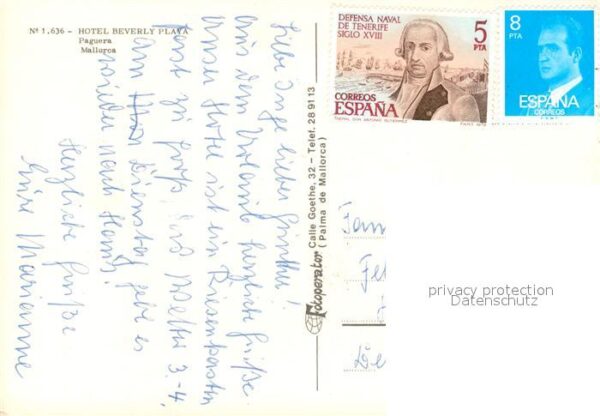 Nº 1.636 - HOTEL BEVERLY PLAYA
Paguera
Mallorca
Liebe Inge lieber Günther!
Aus dem Urlaub herzliche Grüße.
Unser Hotel ist ein Riesenkasten
fast zu groß. Sind Wetter 3-4.
am Dienstag geht es
wieder nach Haus.
Herzliche Grüße
Eure Marianne
Fotoperator
Calle Goethe, 32 - Telef. 28 91 13
( Palma de Mallorca )
DEFENSA NAVAL
DE TENERIFE
SIGLO XVIII
5
PTA
CORREOS
ESPAÑA
8
PTA
ESPAÑA
CORREOS
Fam
privacy protection
Datenschutz